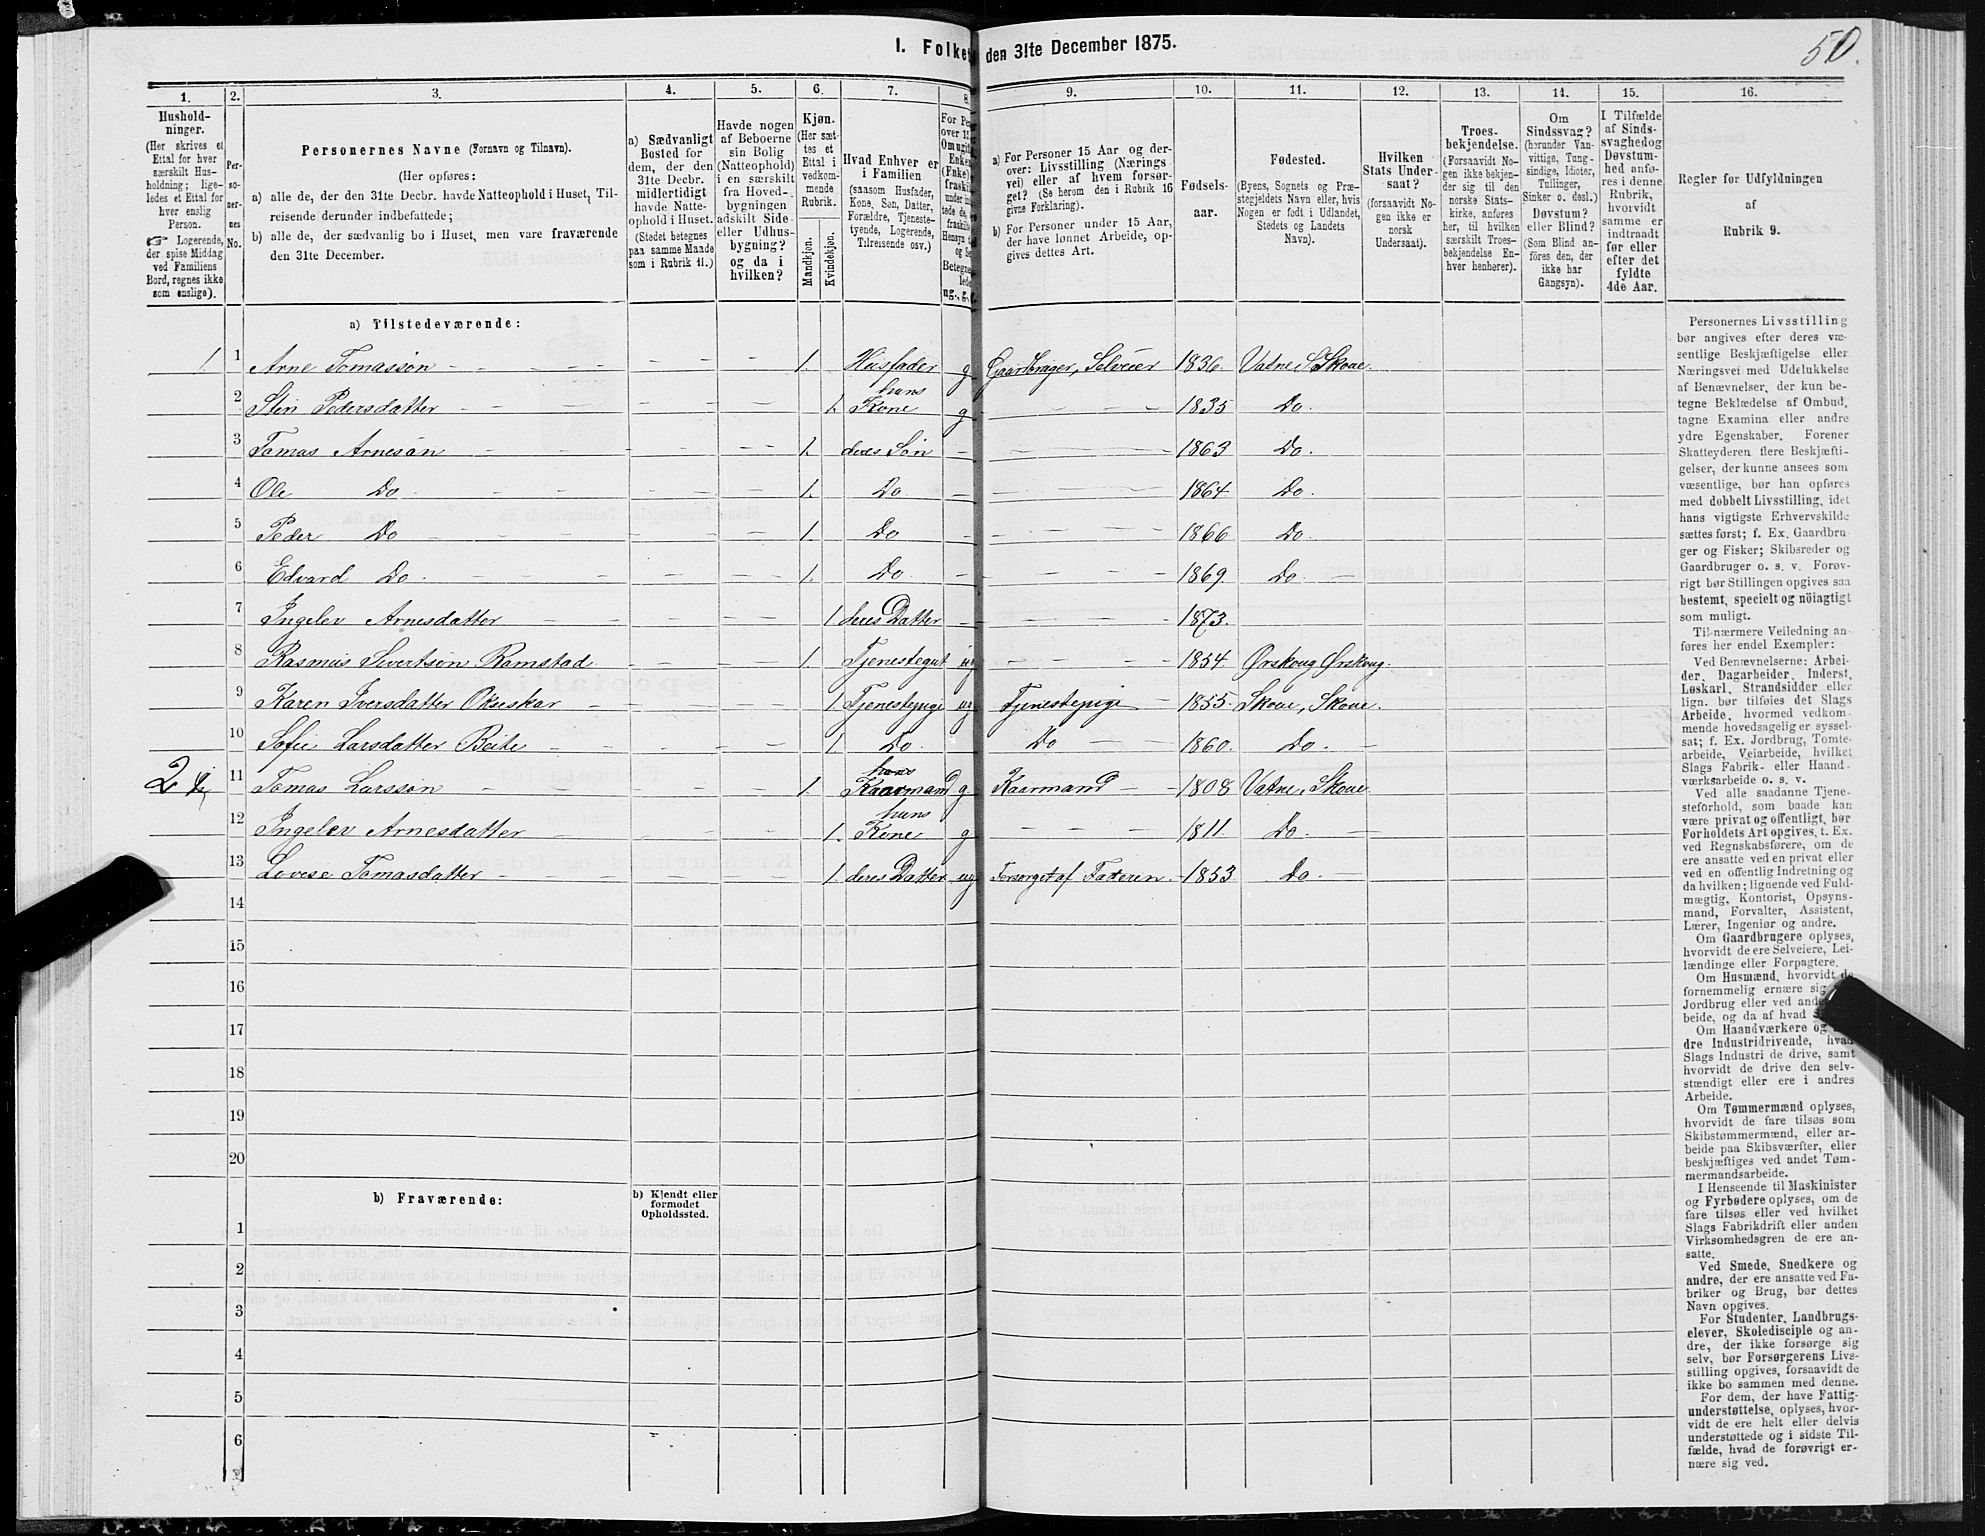 50.
I. Folket
den 31te December 1875.
1. 2. 3. 4. 5. 6. 7. 8. 9. 10. 11. 12. 13. 14. 15. 16.
Hushold-
ninger.
(Her skrives et
Ettal for hver
særskilt Hus-
holdning; lige-
ledes et Ettal for
hver enslig
Person.
☞ Logerende,
der spise Middag
ved Familiens
Bord, regnes ikke
som enslige).
Per-
so-
ner-
nes
No.
Personernes Navne (Fornavn og Tilnavn).
(Her opføres:
a) alle de, der den 31te Decbr. havde Natteophold i Huset, Til-
reisende derunder indbefattede;
b) alle de, der sædvanlig bo i Huset, men vare fraværende
den 31te December.
a) Sædvanligt
Bosted for
dem, der den
31te Decbr.
midlertidigt
havde Natte-
ophold i Huset.
(Stedet betegnes
paa samme Maade
som i Rubrik 11.)
Havde nogen
af Beboerne
sin Bolig
(Natteophold)
i en særskilt
fra Hoved-
bygningen
adskilt Side-
eller Udhus-
bygning?
og da i
hvilken?
Kjøn.
(Her sæt-
tes et
Ettal i
vedkom-
mende
Rubrik.
Mandkjøn.
Kvindekjøn.
Hvad Enhver er
i Familien
(saasom Husfader,
Kone, Søn, Datter,
Forældre, Tjeneste-
tyende, Logerende,
Tilreisende osv.)
a) For Personer 15 Aar og der-
over: Livsstilling (Nærings
vei) eller af hvem forsør-
get? (Se herom den i Rubrik 16
givne Forklaring).
b) For Personer under 15 Aar,
der have lønnet Arbeide, op-
gives dettes Art.
Fødsels-
aar.
Fødested.
(Byens, Sognets og Præ-
stegjeldets Navn eller, hvis
Nogen er født i Udlandet,
Stedets og Landets
Navn).
Hvilken
Stats Under-
saat?
(forsaavidt No-
gen ikke er
norsk
Undersaat).
Troes-
bekjendelse.
(Forsaavidt No-
gen ikke bekjen-
der sig til den
norske Stats-
kirke, anføres
her, til hvilken
særskilt Troes-
bekjendelse En-
hver henhører).
Om
Sindssvag?
(herunder Van-
vittige, Tung-
sindige, Idioter,
Tullinger,
Sinker o. desl.)
Døvstum?
eller Blind?
(Som Blind an-
føres den, der
ikke har
Gangsyn).
I Tilfælde
af Sinds-
svaghed og
Døvstum-
hed anfø-
res i denne
Rubrik,
hvorvidt
samme er
indtraadt
før eller
efter det
fyldte
4de Aar.
Regler for Udfyldningen
af
Rubrik 9.
a) Tilstedeværende:
1. 1 Arne Tomassøn 1. Husfader g Gaardbruger, Selveier 1836. Vatne, Skoue.
2 Stin Pedersdatter 1. hans Kone g 1835 Do.
3 Tomas Arnesøn 1. deres Søn 1863 Do.
4 Ole Do 1. Do 1864. Do.
5 Peder Do 1. Do 1866 Do.
6 Edvard Do. 1. Do. 1869. Do
7 Ingelev Arnesdatter 1 deres Datter 1873.
8 Rasmus Sivertsøn Ramstad 1. Tjenestegut ug 1854. Ørskoug Ørskoug.
9 Karen Iversdatter Okseskar 1. Tjenestepige ug Tjenestepige 1855. Skoue, Skoue.
10 Sofie Larsdatter Beite 1. Do Do 1860. Do.
2 11 Tomas Larssøn 1. hans Kaarmand g Kaarmand 1808 Vatne, Skoue
12 Ingelev Arnesdatter 1. hans Kone g 1811. Do.
13 Lovese Tomasdatter 1. deres Datter ug Forsørget af Faderen. 1853 Do.
14
15
16
17
18
19
20
b) Fraværende:
b) Kjendt eller
formodet
Opholdssted.
1
2
3
4
5
6
Personernes Livsstilling
bør angives efter deres væ-
sentlige Beskjæftigelse eller
Næringsvei med Udelukkelse
af Benævnelser, der kun be-
tegne Beklædelse af Ombud,
tagne Examina eller andre
ydre Egenskaber. Forener
Skatteyderen flere Beskjæfti-
gelser, der kunne ansees som
væsentlige, bør han opføres
med dobbelt Livsstilling, idet
hans vigtigste Erhvervskilde
sættes først; f. Ex. Gaardbru-
ger og Fisker; Skibsreder og
Gaardbruger o. s. v. Forøv-
rigt bør Stillingen opgives saa
bestemt, specielt og nöiagtigt
som muligt.
Til nærmere Veiledning an-
føres her endel Exempler:
Ved Benævnelserne: Arbei-
der, Dagarbeider, Inderst,
Løskarl, Strandsidder eller
lign. bør tilføies det Slags
Arbeide, hvormed vedkom-
mende hovedsagelig er syssel-
sat; f. Ex. Jordbrug, Tomte-
arbeide, Veiarbeide, hvilket
Slags Fabrik- eller Haand-
værksarbeide o. s. v.
Ved alle saadanne Tjene-
steforhold, som baade kan
være privat og offentligt, bør
Forholdets Art opgives, t. Ex.
ved Regnskabsførere, om de
ere ansatte ved en privat eller
ved en offentlig Indretning og
da hvilken; lignende ved Fuld-
mægtig, Kontorist, Opsyns-
mand, Forvalter, Assistent,
Lærer, Ingeniør og andre.
Om Gaardbrugere oplyses,
hvorvidt de ere Selveiere, Lei-
lændinge eller Forpagtere.
Om Husmænd, hvorvidt de
fornemmelig ernære sig
Jordbrug eller ved
beide, og da af hvad
Om Haandværkere og
dre Industridrivende, hvad
Slags Industri de drive, samt
hvorvidt de drive den selv-
stændigt eller ere i andres
Arbeide.
Om Tømmermænd oplyses,
hvorvidt de fare tilsøs som
Skibstømmermænd, eller ar-
beide paa Skibsværfter, eller
beskjæftiges ved andet Tøm-
mermandsarbeide.
I Henseende til Maskinister
og Fyrbødere oplyses, om de
fare tilsøs eller ved hvilket
Slags Fabrikdrift eller anden
Virksomhedsgren de ere an-
satte.
Ved Smede, Snedkere og
andre, der ere ansatte ved Fa-
briker og Brug, bør dettes
Navn opgives.
For Studenter, Landbrugs-
elever, Skoledisciple og an-
dre, der ikke forsørge sig
selv, bør Forsørgerens Livs-
stilling opgives, forsaavidt de
ikke bo sammen med denne.
For dem, der have Fattig-
understøttelse, oplyses, hvor-
vidt de ere helt eller delvis
understøttede og i sidste Til-
fælde, hvad de forøvrigt er-
nære sig ved.